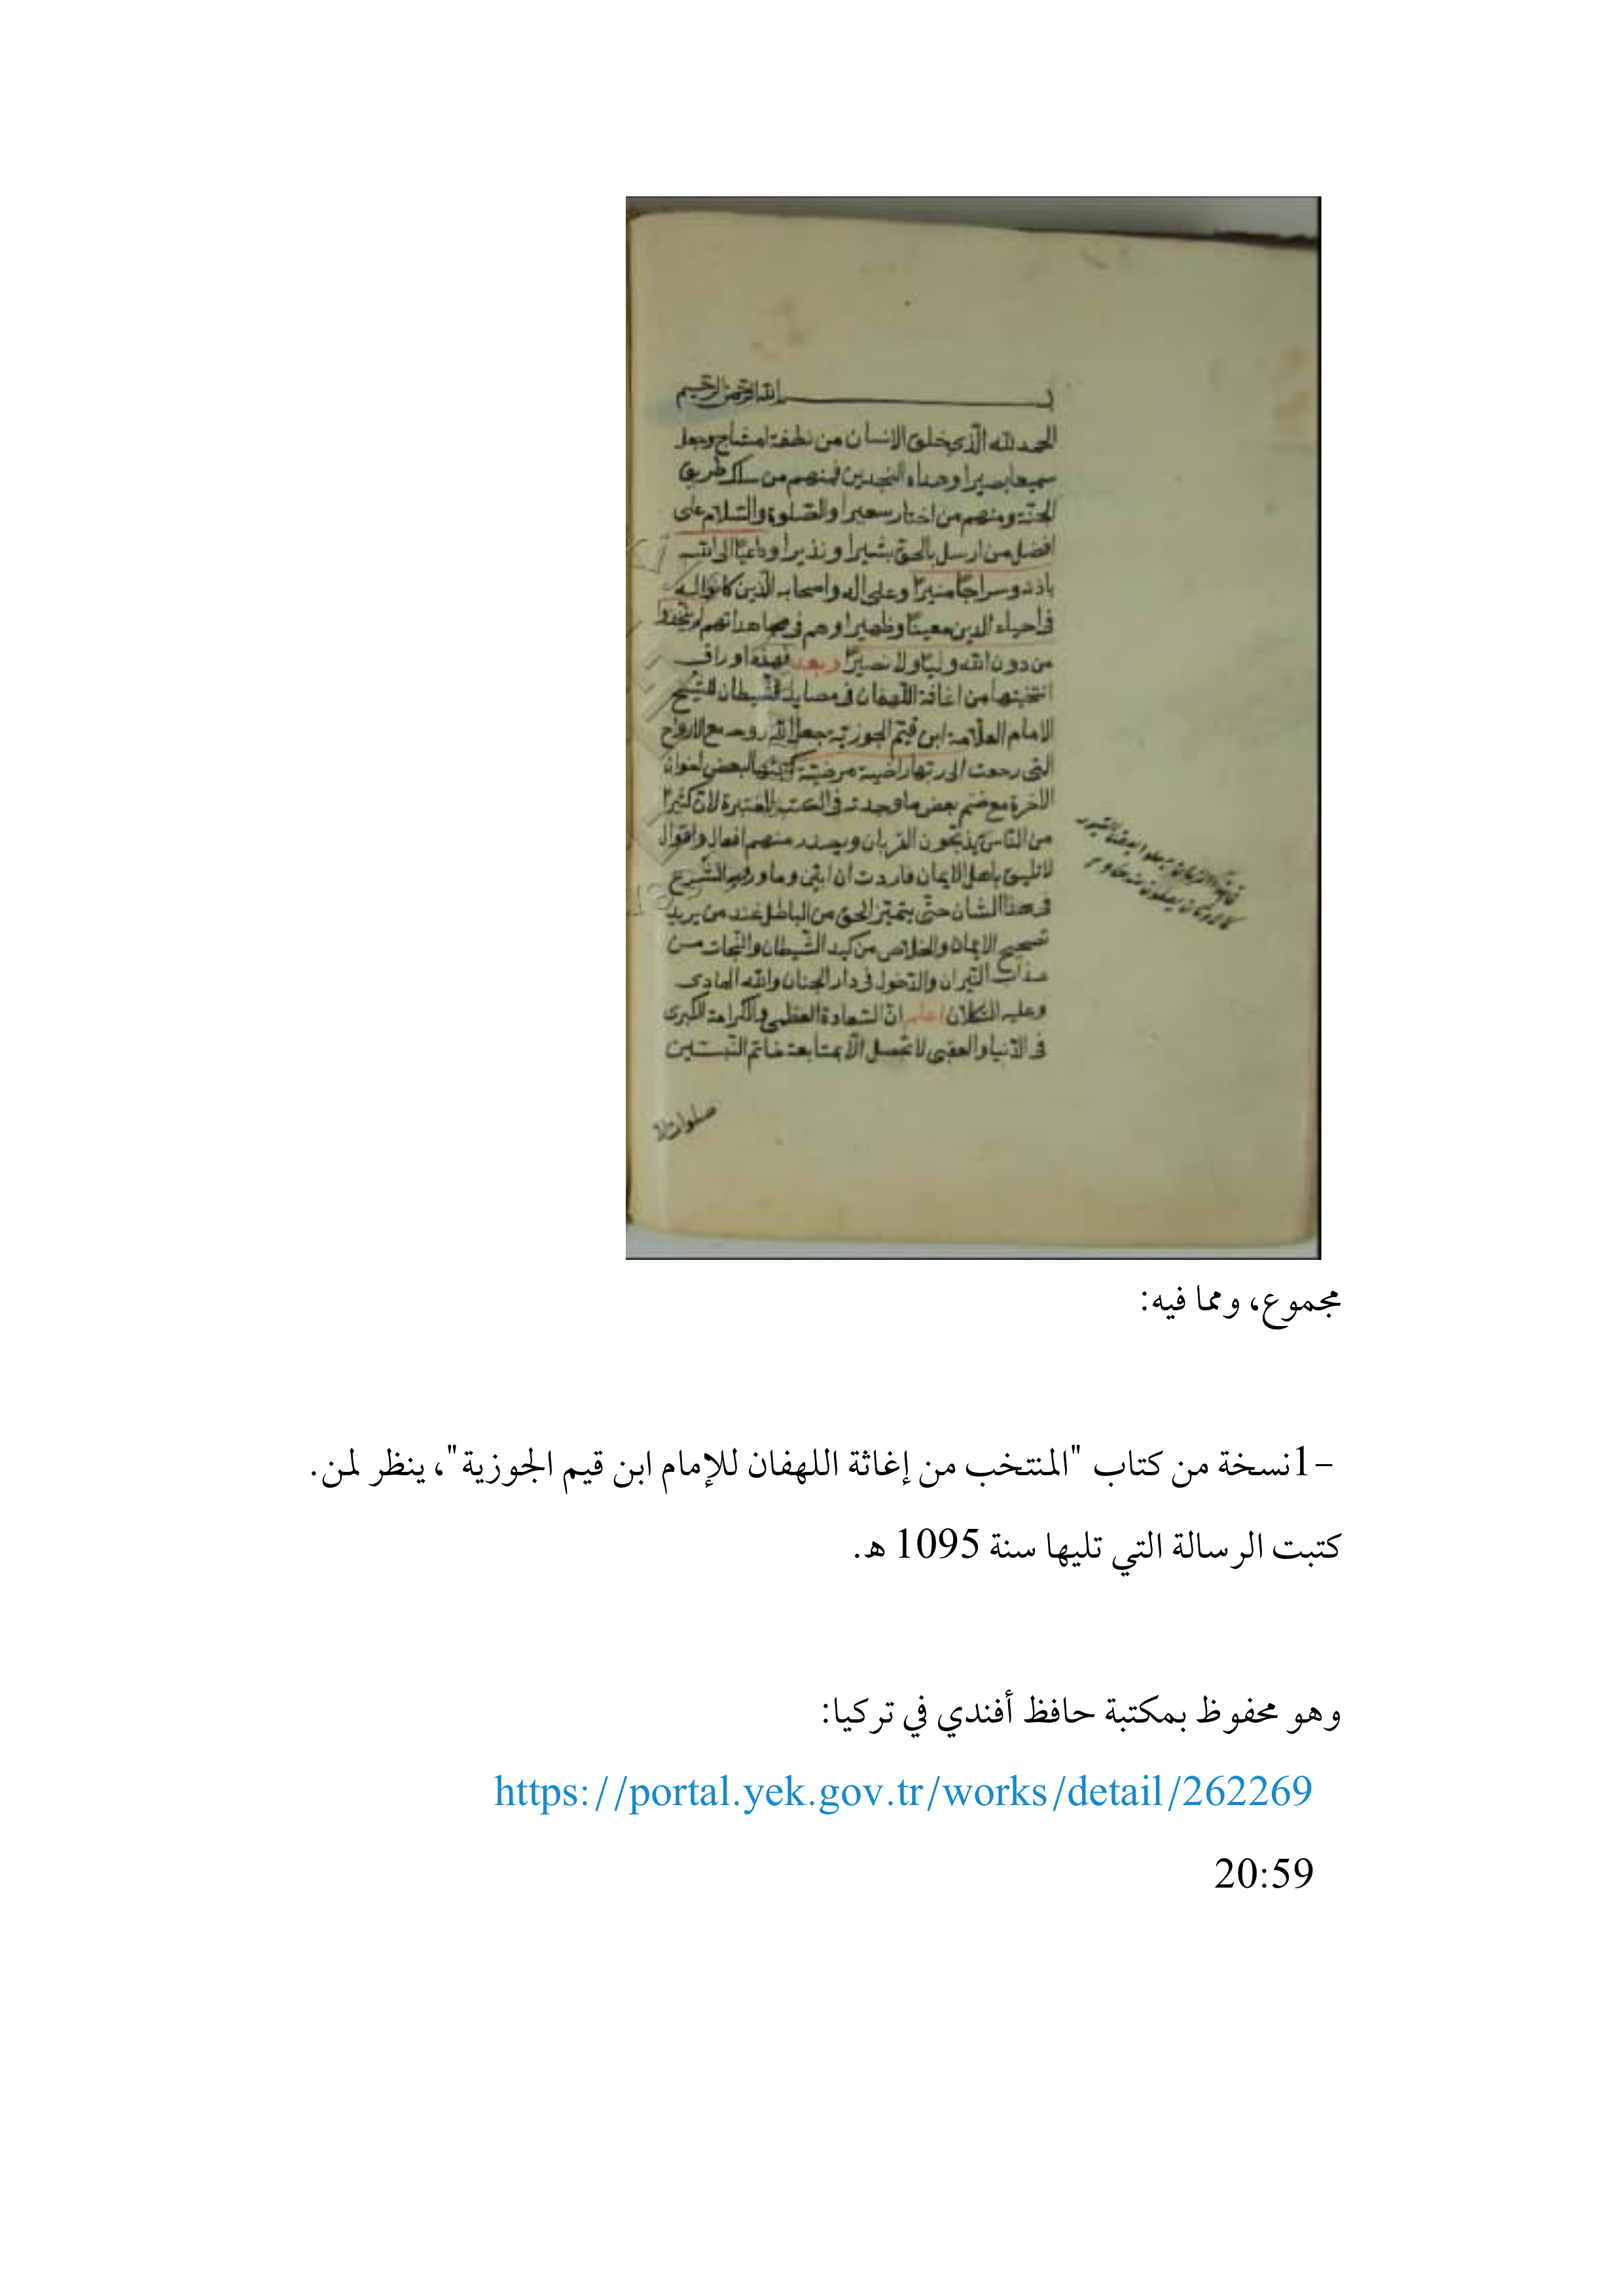 بسم الله الرحمن الرحيم
الحمد لله الذي خلق الانسان من نطفة امشاج وجعل
سميعا بصيرا وهداه النجدين فمنهم من سلك طريق
الجنة ومنهم من اختار سعيرا والصلوة والسلام على
افضل من ارسل بالحق بشيرا ونذيرا وداعيا الى الله
باذنه وسراجا منيرا وعلى اله واصحابه الذين كانوا له
فى احياء الدين معينا وظهيرا وهم فى مجاهداتهم لم يتخذوا
من دون الله وليا ولا نصيرا وبعد فهذه اوراق
انتخبتها من اغاثة اللهفان فى مصايد الشيطان للشيخ
الامام العلامة ابن قيم الجوزية جعل الله روحه مع الارواح
التى رجعت الى ربها راضية مرضية كتبتها لبعض اخوان
الاخرة مع ضم بعض ما وجدته فى الكتب المعتبرة لان كثيرا
من الناس يذبحون القربان ويصدر منهم افعال واقوال
لا تليق باهل الايمان فاردت ان ابين وما ورد به الشرع
فى هذا الشان حتى يتميز الحق من الباطل عند من يريد
تصحيح الايمان والخلاص من كيد الشيطان والنجات من
عذاب النيران والدخول فى دار الجنان والله الهادى
وعليه التكلان اعلم ان السعادة العظمى والكرامة الكبرى
فى الدنيا والعقبى لا تحصل الا بمتابعة خاتم النبيين
مجموع، ومما فيه:
-1نسخة من كتاب "المنتخب من إغاثة اللهفان للإمام ابن قيم الجوزية"، ينظر لمن.
كتبت الرسالة التي تليها سنة 1095 هـ.
وهو محفوظ بمكتبة حافظ أفندي في تركيا:
https://portal.yek.gov.tr/works/detail/262269
20:59